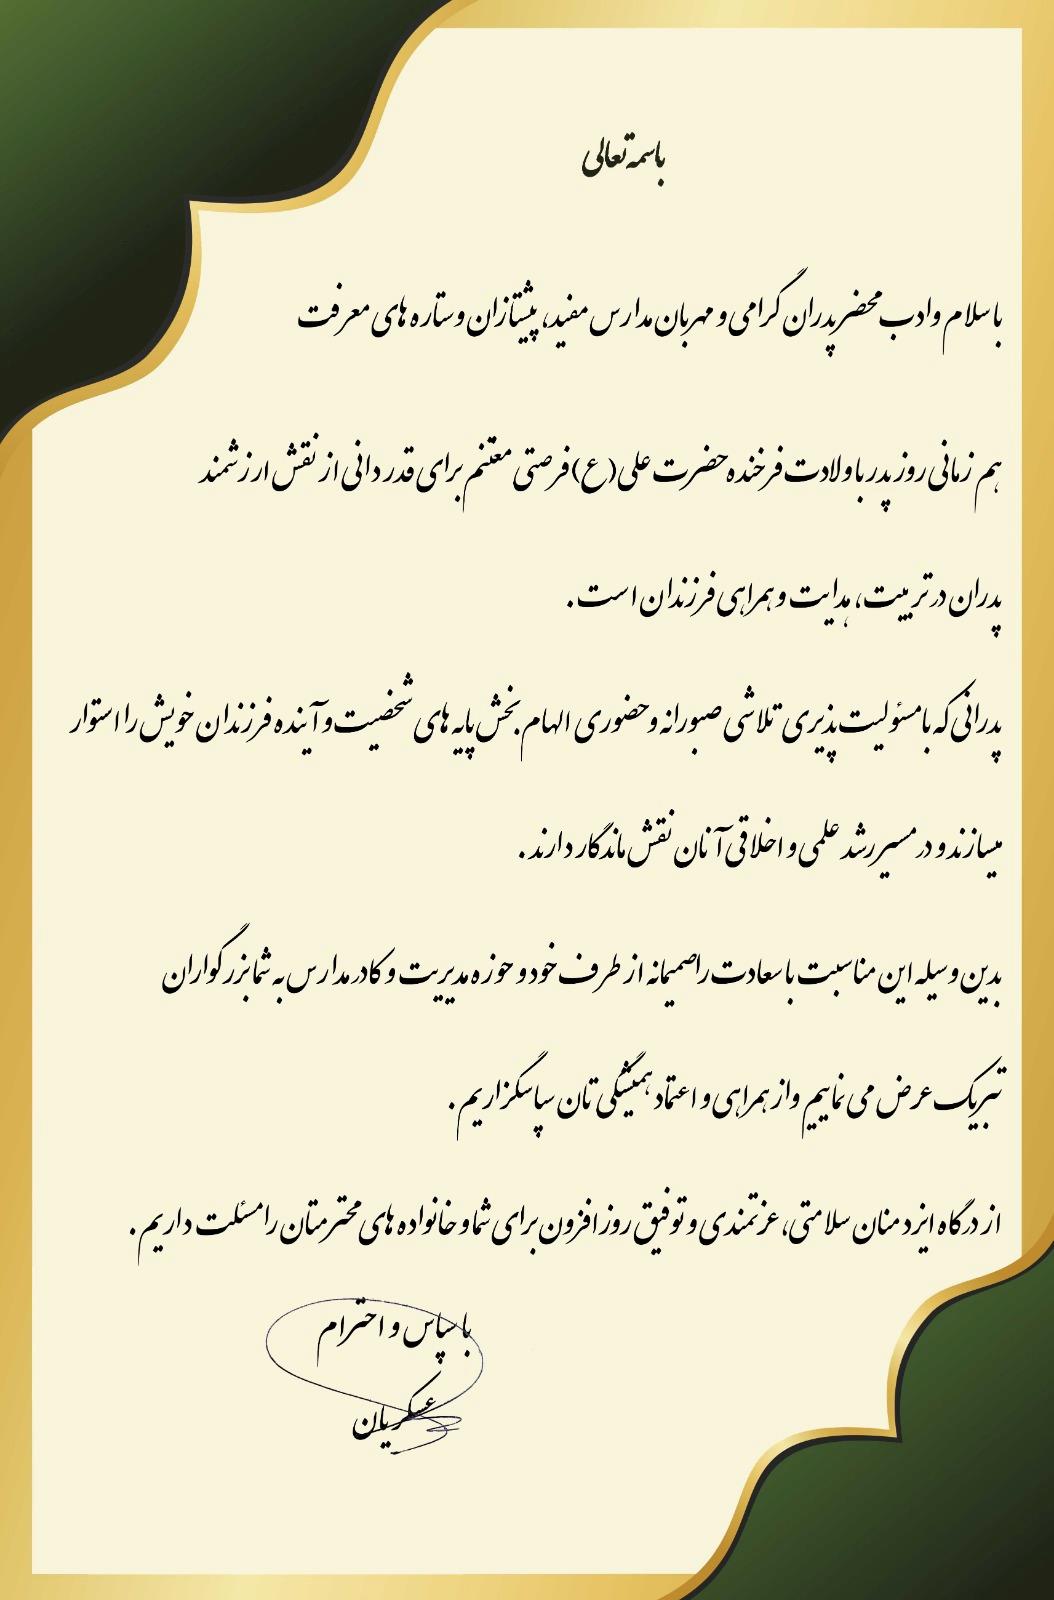 باسمه تعالی
با سلام و ادب محضر پدران گرامی و مهربان مدارس مفید، پیشتازان و ستاره های معرفت
هم زمانی روز پدر با ولادت فرخنده حضرت علی(ع) فرصتی مغتنم برای قدردانی از نقش ارزشمند
پدران در تربیت، هدایت و همراهی فرزندان است.
پدرانی که با مسئولیت پذیری تلاشی صبورانه و حضوری الهام بخش پایه های شخصیت و آینده فرزندان خویش را استوار
میسازند و در مسیر رشد علمی و اخلاقی آنان نقش ماندگار دارند.
بدین وسیله این مناسبت با سعادت را صمیمانه از طرف خود و حوزه مدیریت و کادر مدارس به شما بزرگواران
تبریک عرض می نماییم و از همراهی و اعتماد همیشگی تان سپاسگزاریم.
از درگاه ایزد منان سلامتی، عزتمندی و توفیق روز افزون برای شما و خانواده های محترمتان را مسئلت داریم.
با سپاس و احترام
عسکریان